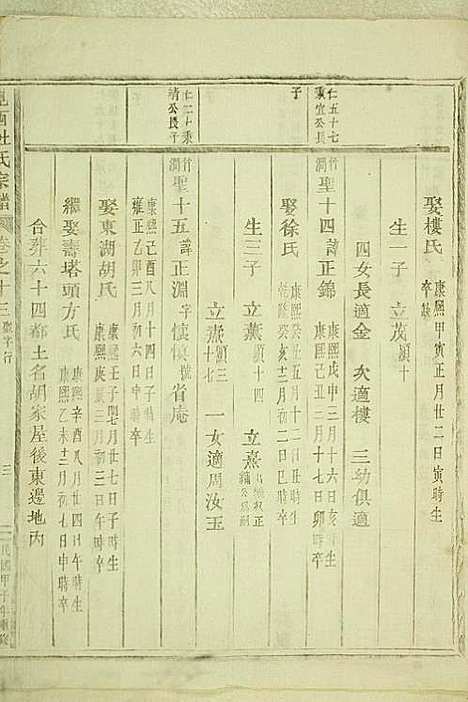 娶樓氏 康熙甲寅正月廿二日寅時生 卒缺
生一子 立茂 願十
四女長適金 次適樓 三幼俱適
仁五十七秉宜公長子
聖十四 諱正錦 康熙戊申三月十六日亥時生
娶徐氏 康熙壬五月十二日丑時生 乾隆癸亥十二月初二日巳時卒
生三子 立薰 願十四 立熹 立燕 願三十七 一女適周汝玉
秉靖公長子
聖十五 諱正淵 字懷 號省庵 康熙己酉八月十四日子時生 雍正乙卯三月初六日申時卒
娶東湖胡氏 康熙壬子閏七月廿七日子時生 康熙庚 三月初七日午時卒
繼娶壽塔頭方氏 康熙辛酉八月廿四日午時生 乾隆乙未十二月初九日申時卒
合葬六十四都土名胡家屋後東邊地丙
杜氏宗譜 卷之十三 聖字行 三 民國甲子年重修